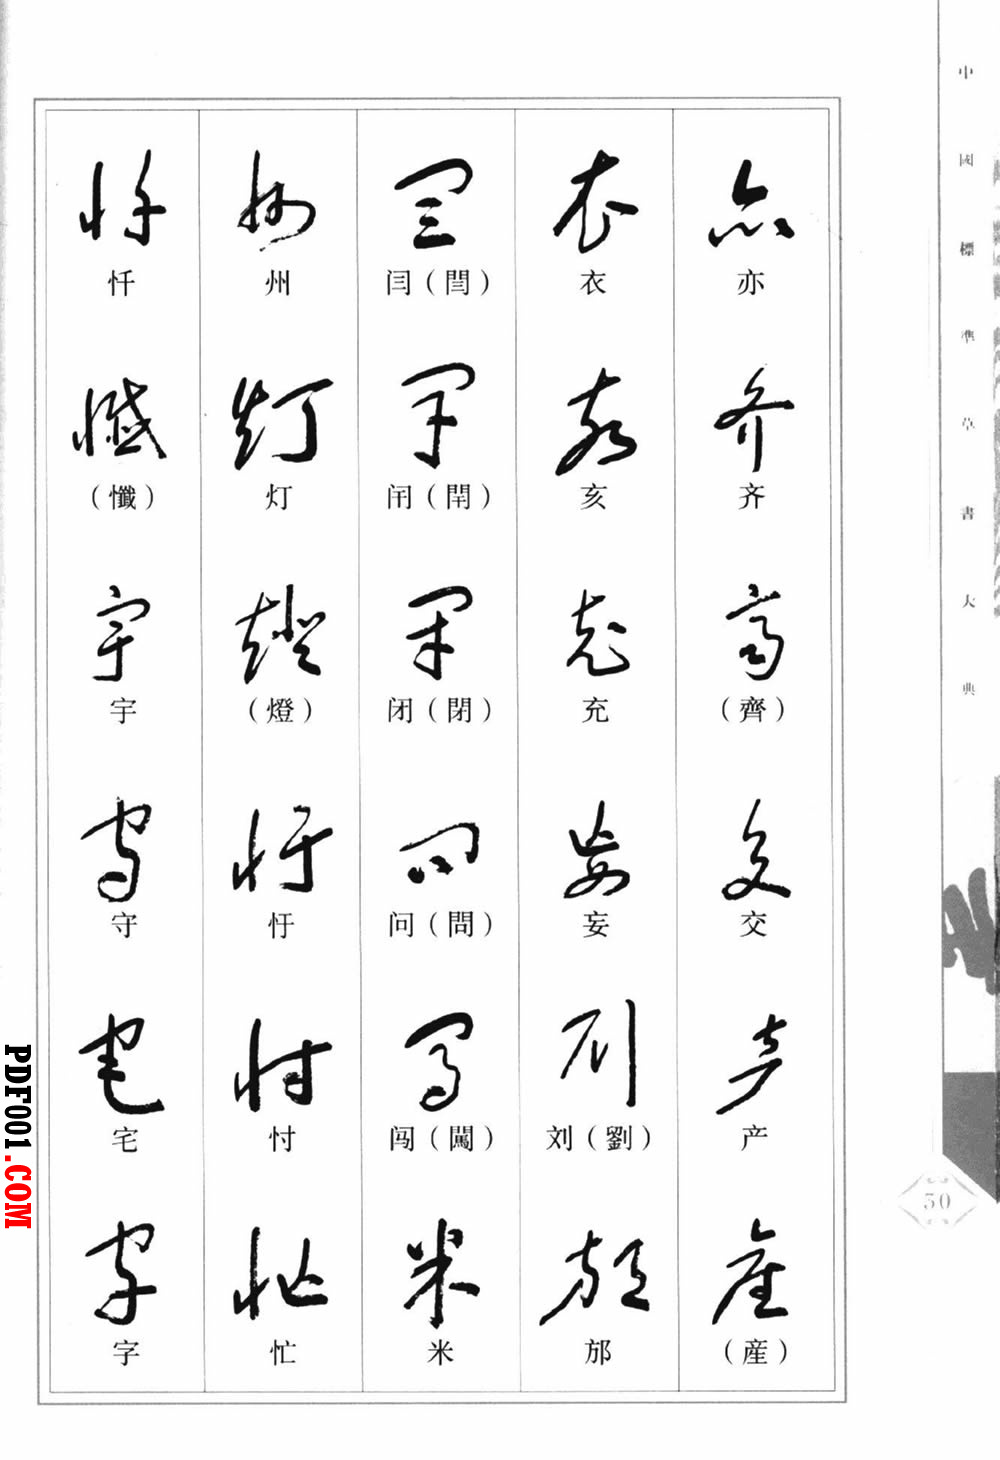 中國標準草書大典
亦
齐
（齊）
交
产
（産）
衣
亥
充
妄
刘（劉）
邡
闫（閆）
闬（閈）
闭（閉）
问（問）
闯（闖）
米
州
灯
（燈）
忏
忖
忙
忏
（懺）
宇
守
宅
字
50
PDF001.COM